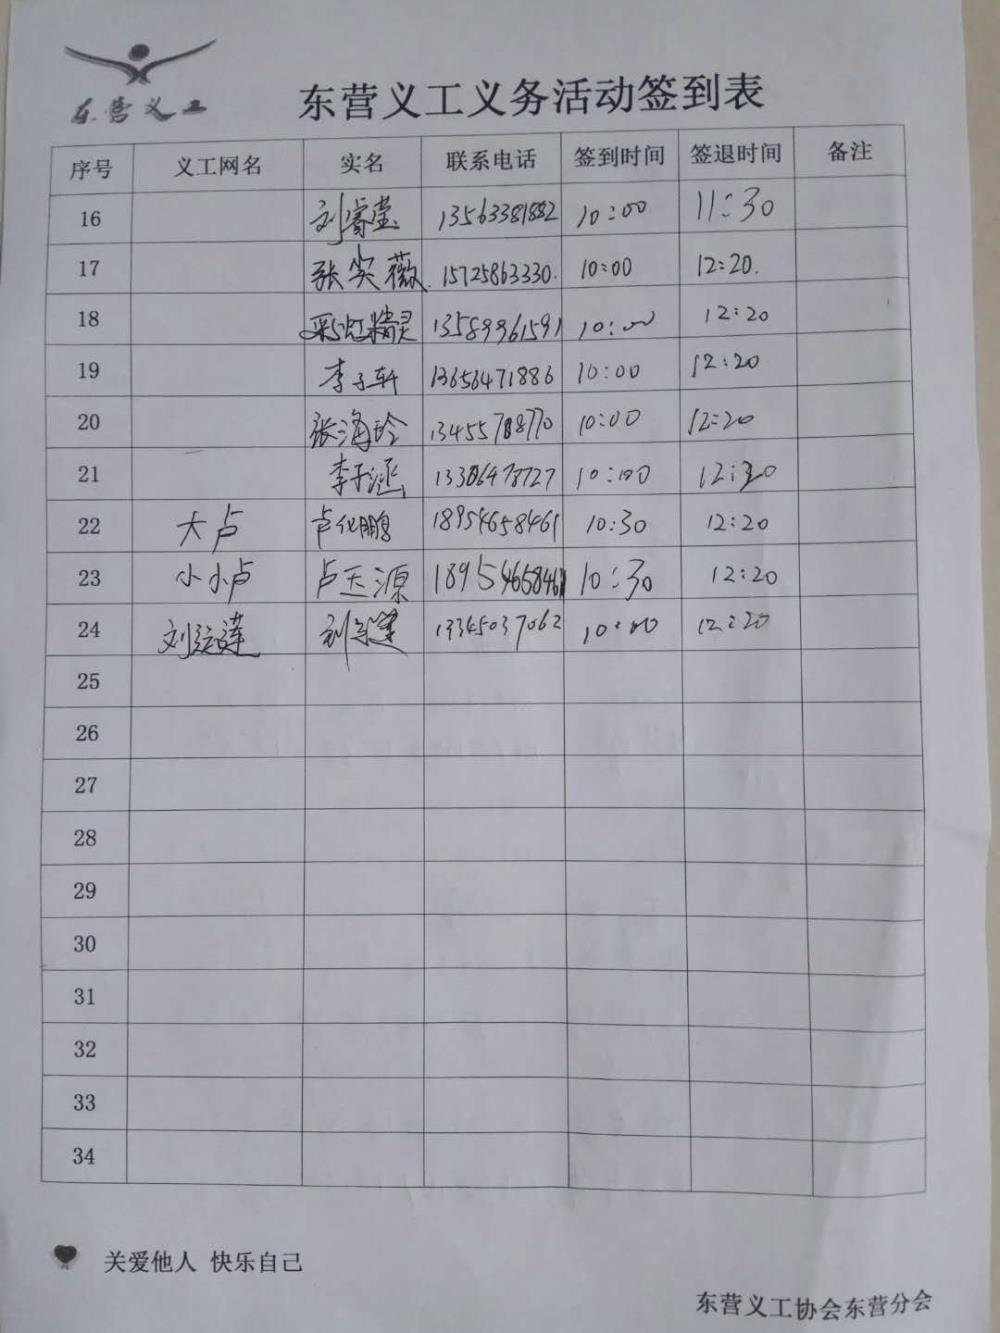 东营义工
东营义工义务活动签到表
序号 义工网名 实名 联系电话 签到时间 签退时间 备注
16 刘睿莹 13563381882 10:00 11:30
17 张奕薇 15725863330 10:00 12:20
18 彩虹精灵 13589961591 10:00 12:20
19 李子轩 13656471886 10:00 12:20
20 张海玲 13455788770 10:00 12:20
21 李子涵 13306478727 10:00 12:20
22 大卢 卢化鹏 18954658461 10:30 12:20
23 小小卢 卢天源 18954658461 10:30 12:20
24 刘运莲 刘运莲 13345037062 10:00 12:20
25
26
27
28
29
30
31
32
33
34
关爱他人 快乐自己
东营义工协会东营分会